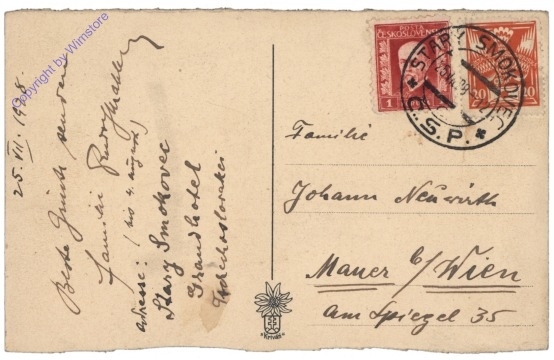 25. VII. 1928.
Beste Grüße senden
Familie
Adresse: (bis 4. August)
Stary Smokovec
Grandhotel
Tschechoslovakei
POSTA
ČESKOSLOVENSKO
1
20 20
STARÝ SMOKOVEC
Č.S.P.
Familie
Johann Neuwirth
Mauer b/Wien
Am Spiegel 35
"Krivaň"
Copyright by Wimstore